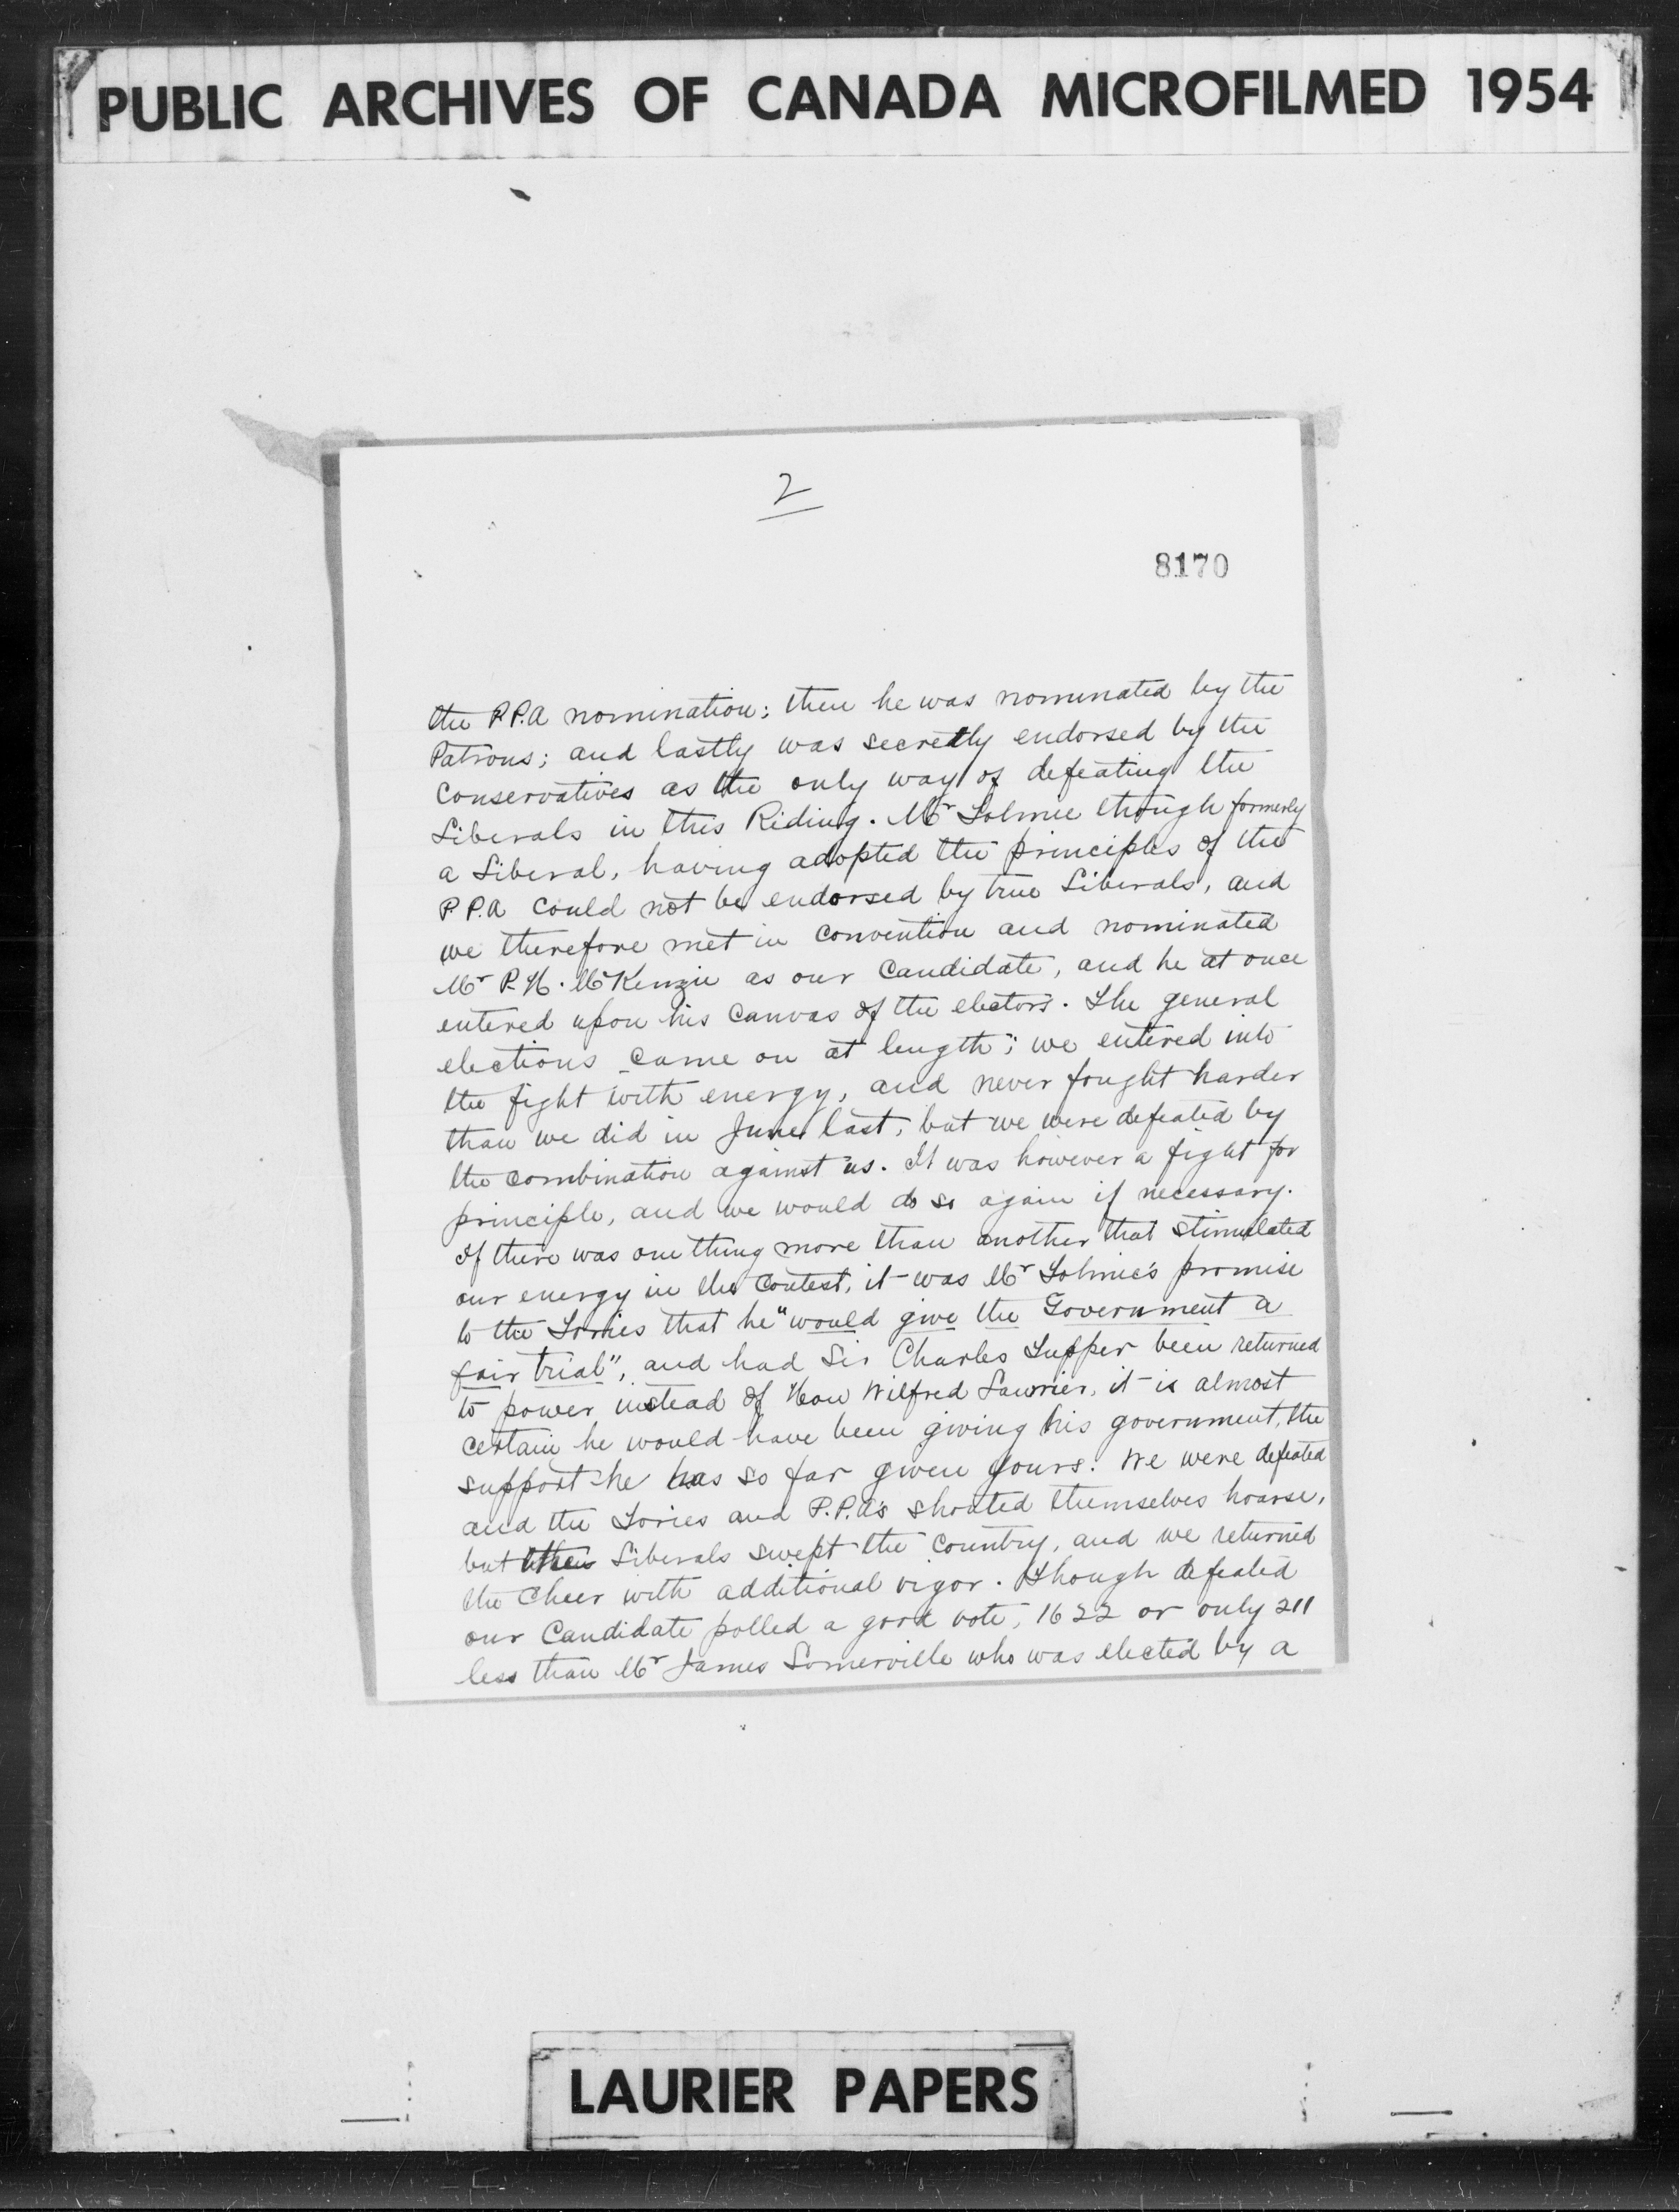 PUBLIC ARCHIVES OF CANADA MICROFILMED 1954
2
8170
the P.P.A nomination; then he was nominated by the
Patrons; and lastly was secretly endorsed by the
Conservatives as the only way of defeating the
Liberals in this Riding. Mr Tolmie though formerly
a Liberal, having adopted the principles of the
P.P.A could not be endorsed by true Liberals, and
we therefore met in convention and nominated
Mr P. H. McKenzie as our Candidate, and he at once
entered upon his Canvas of the electors. The general
elections came on at length; we entered into
the fight with energy, and never fought harder
than we did in June last, but we were defeated by
the combination against us. It was however a fight for
principle, and we would do so again if necessary.
If there was one thing more than another that stimulated
our energy in the Contest, it was Mr Tolmie's promise
to the Tories that he "would give the Government a
fair trial", and had Sir Charles Tupper been returned
to power instead of Hon Wilfred Laurier, it is almost
certain he would have been giving his government, the
support he has so far given yours. We were defeated
and the Tories and P.P.A's shouted themselves hoarse,
but the Liberals swept the Country, and we returned
the Cheer with additional vigor. Though defeated
our Candidate polled a good vote, 1622 or only 211
less than Mr James Somerville who was elected by a
LAURIER PAPERS